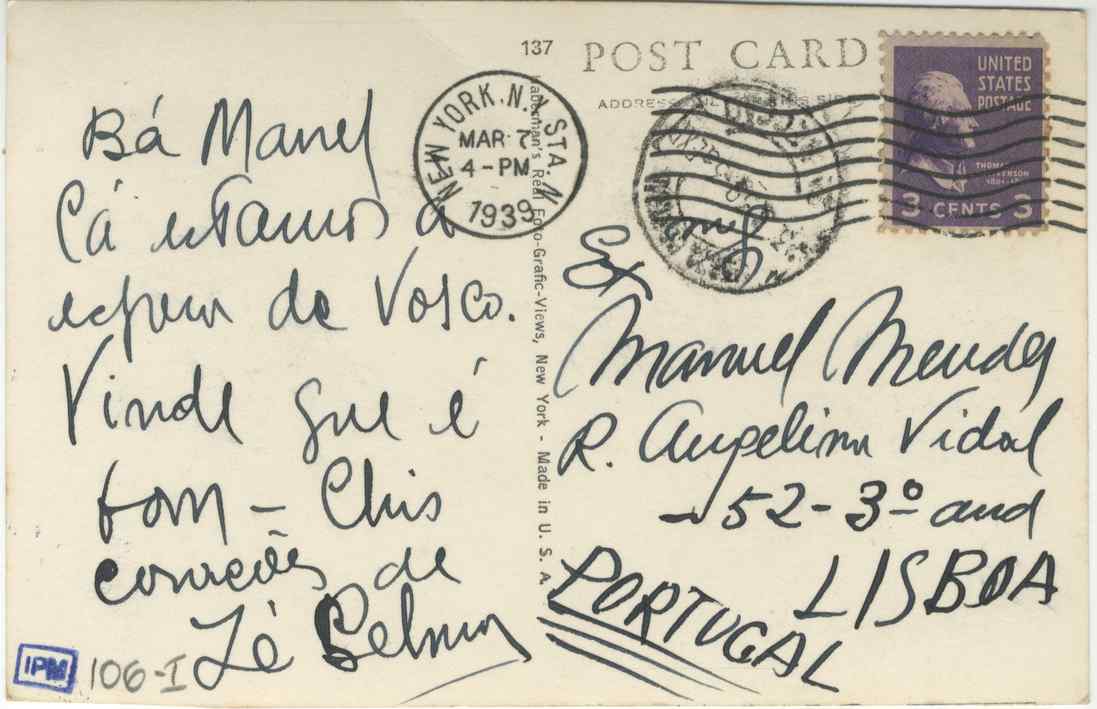 137
POST CARD
ADDRESS
NEW YORK, N.Y. STA.
MAR 7
4-PM
1939
UNITED
STATES
POSTAGE
THOMAS
JEFFERSON
3 CENTS 3
Bá Manel
Cá estamos à
espera de Vosco.
Vinde que é
bom - Chis
corações de
Zé
Haberman's Real Foto-Grafic-Views, New York - Made in U. S. A.
Manuel Mendes
R. Angelina Vidal
52-3º and
LISBOA
PORTUGAL
IPM
106-I